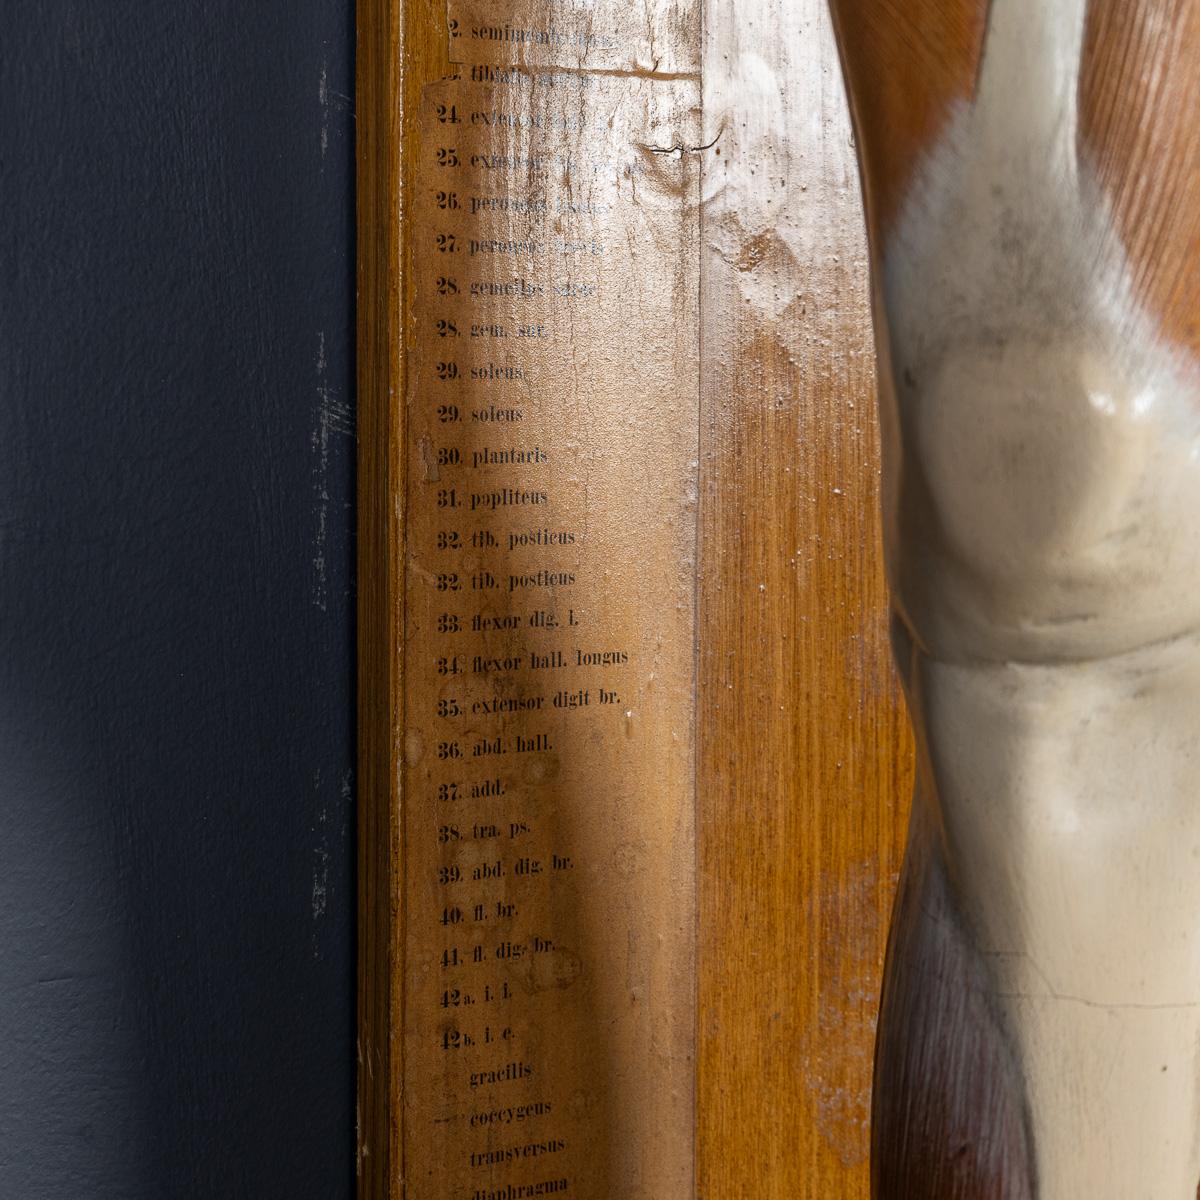 2. semimembranosus
tibialis
24. extensor
25. extensor
26. peroneus longus
27. peroneus brevis
28. gemellus surae
28. gem. sur.
29. soleus
29. soleus
30. plantaris
31. popliteus
32. tib. posticus
32. tib. posticus
33. flexor dig. l.
34. flexor hall. longus
35. extensor digit br.
36. abd. hall.
37. add.
38. tra. ps.
39. abd. dig. br.
40. fl. br.
41. fl. dig. br.
42a. i. i.
42b. i. e.
gracilis
coccygeus
transversus
diaphragma